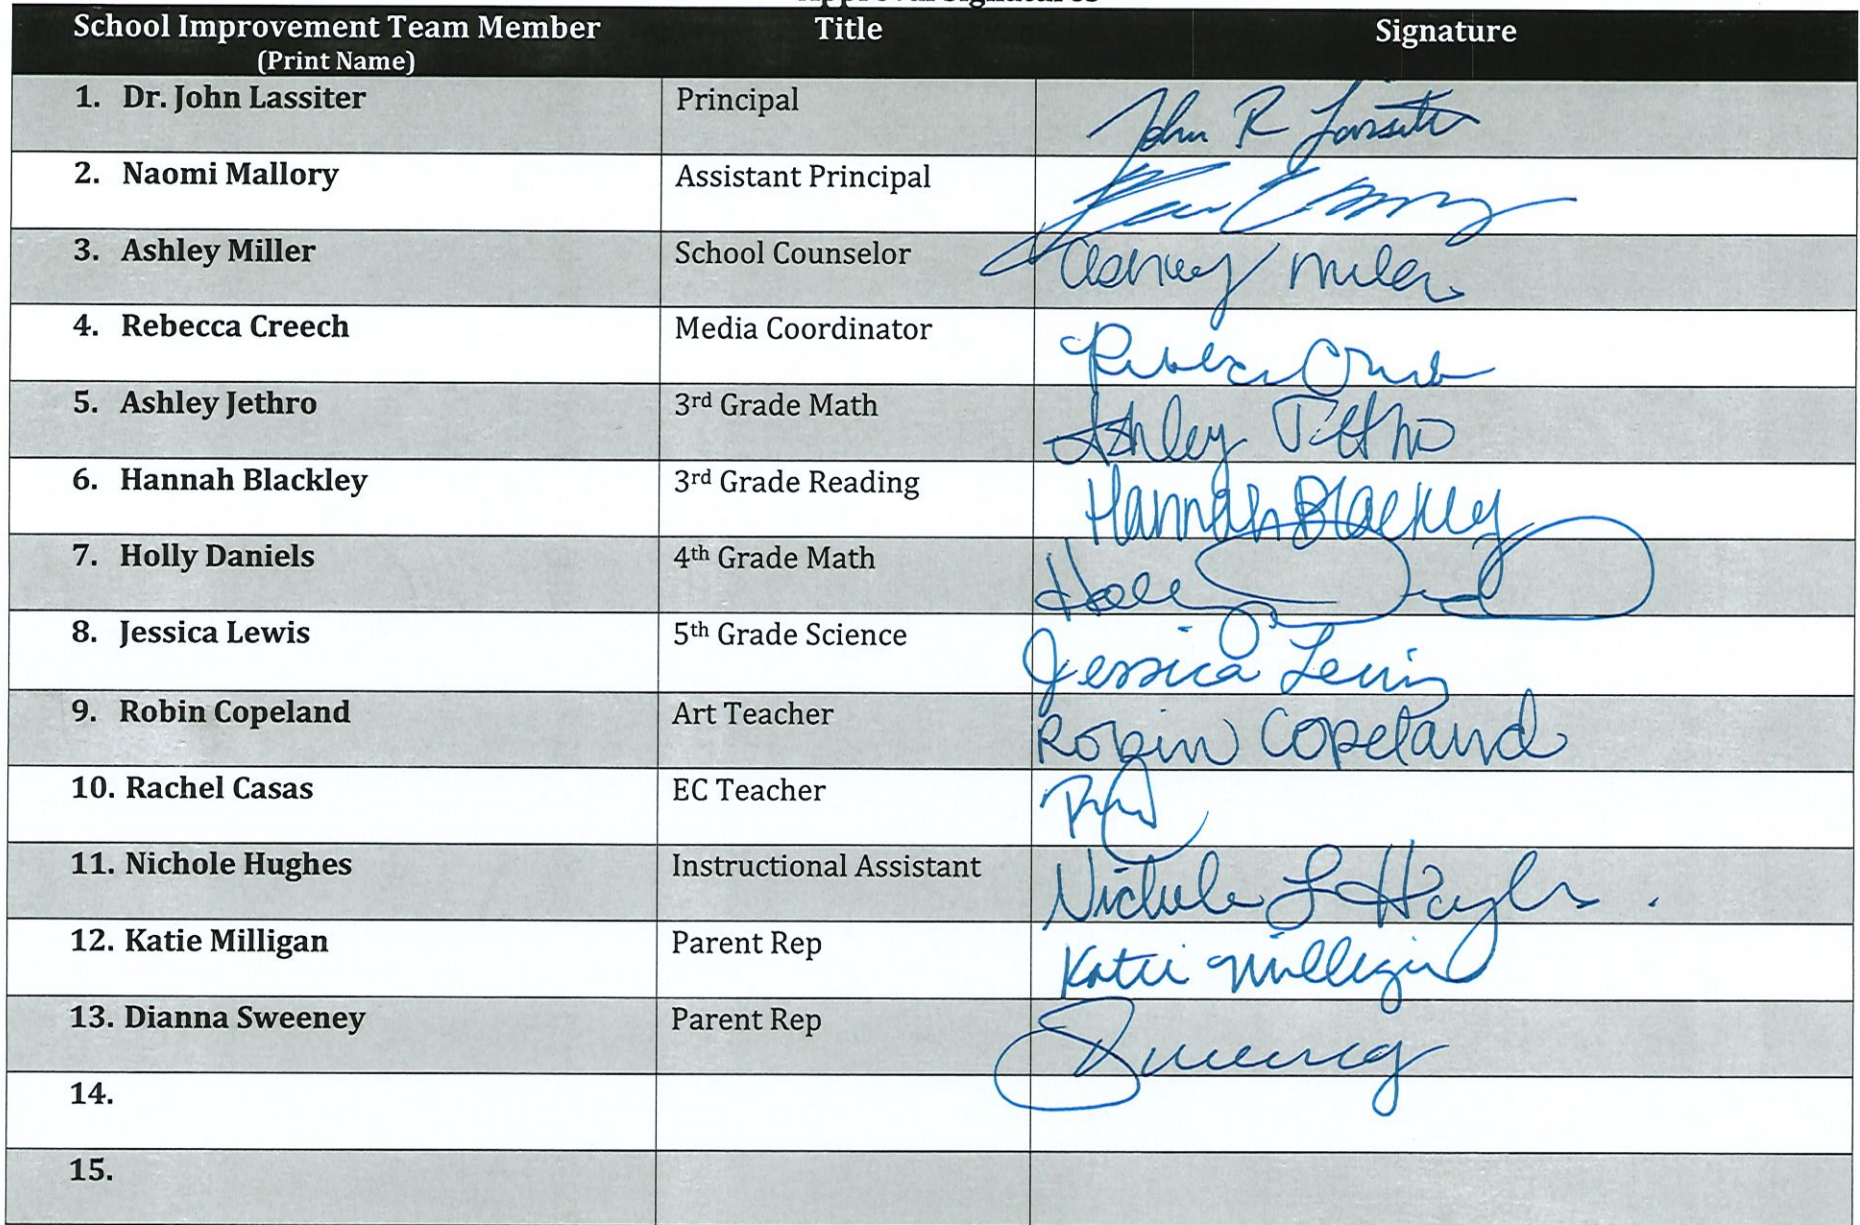 Approval Signatures
School Improvement Team Member Title Signature
(Print Name)
1. Dr. John Lassiter Principal John R Lassiter
2. Naomi Mallory Assistant Principal
3. Ashley Miller School Counselor Ashley Miller
4. Rebecca Creech Media Coordinator Rebecca Creech
5. Ashley Jethro 3rd Grade Math Ashley Jethro
6. Hannah Blackley 3rd Grade Reading Hannah Blackley
7. Holly Daniels 4th Grade Math Holly
8. Jessica Lewis 5th Grade Science Jessica Lewis
9. Robin Copeland Art Teacher Robin Copeland
10. Rachel Casas EC Teacher
11. Nichole Hughes Instructional Assistant Nichole L Hughes
12. Katie Milligan Parent Rep Katie Milligan
13. Dianna Sweeney Parent Rep DSweeney
14.
15.